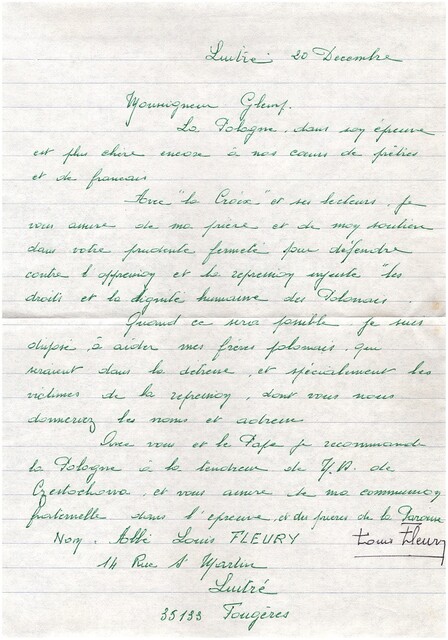 Luitré 20 Decembre
Monseigneur Glemp.
La Pologne, dans son épreuve
est plus chere encore à nos cœurs de prêtres
et de francais
Avec "la Croix" et ses lecteurs, je
vous assure de ma prière et de mon soutien
dans votre prudente fermeté pour défendre
contre l'oppression et la repression injuste "les
droits et la dignité humaine des Polonais.
Quand ce sera possible je suis
disposé, à aider mes frères polonais, qui
seraient dans la detresse, et spécialement les
victimes de la repression, dont vous nous
donneriez les noms et adresse
Avec vous et le Pape je recommande
la Pologne à la tendresse de N.D. de
Czestochowa, et vous assure de ma communion
fraternelle dans l'épreuve, et des prières de la Paroisse
Nom. Abbé Louis FLEURY Louis Fleury
14 Rue St Martin
Luitré
35133 Fougères